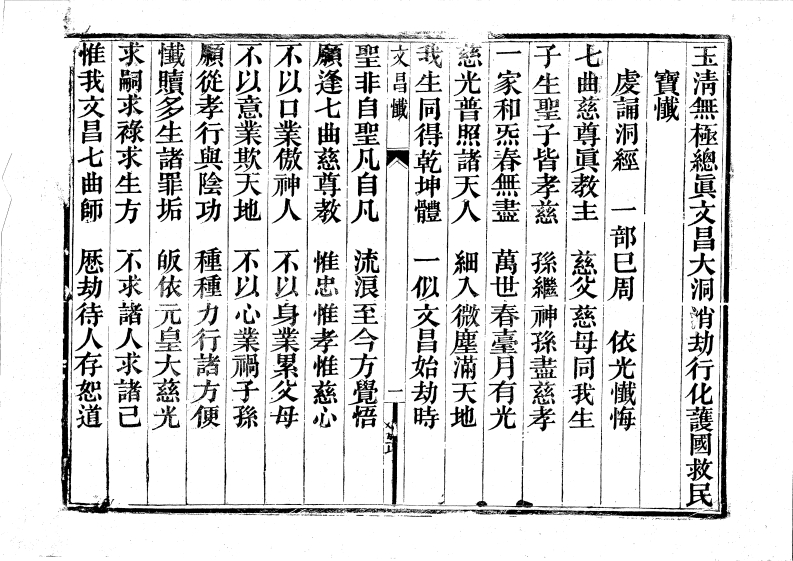 玉清無極總眞文昌大洞消劫行化護國救民
寶懺
虔誦洞經　一部巳周　依光懺悔
七曲慈尊眞敎主　慈父慈母同我生
子生聖子皆孝慈　孫繼神孫盡慈孝
一家和炁春無盡　萬世春臺月有光
慈光普照諸天人　細入微塵滿天地
我生同得乾坤體　一似文昌始劫時
文昌懺　一
聖非自聖凡自凡　流浪至今方覺悟
願逢七曲慈尊教　惟忠惟孝惟慈心
不以口業傲神人　不以身業累父母
不以意業欺天地　不以心業禍子孫
願從孝行與陰功　種種力行諸方便
懺贖多生諸罪垢　皈依元皇大慈光
求嗣求祿求生方　不求諸人求諸己
惟我文昌七曲師　歷劫待人存恕道